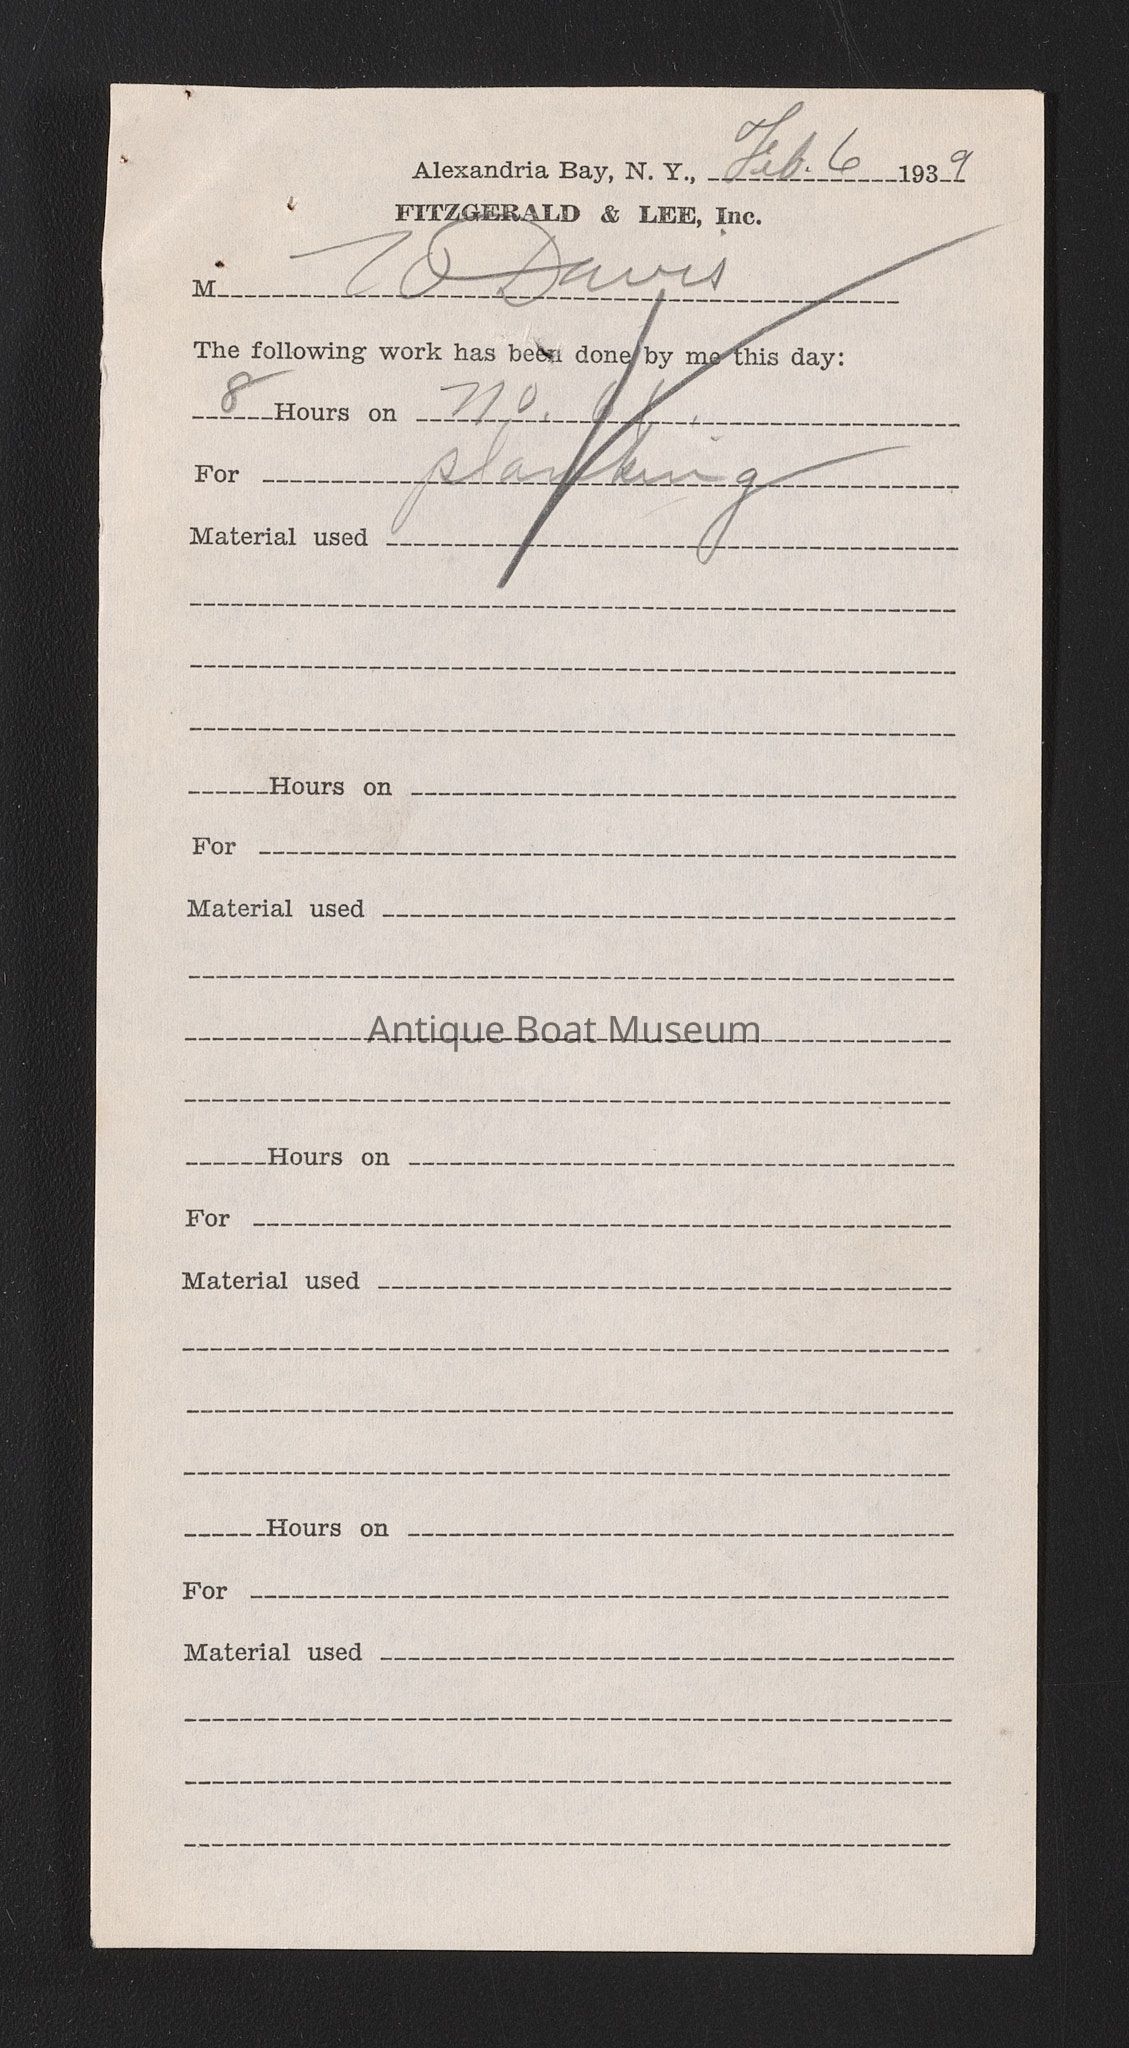 Alexandria Bay, N. Y., Feb. 6 1939
FITZGERALD & LEE, Inc.
M Davis
The following work has been done by me this day:
8 Hours on No.
For planking
Material used
Hours on
For
Material used
Antique Boat Museum
Hours on
For
Material used
Hours on
For
Material used